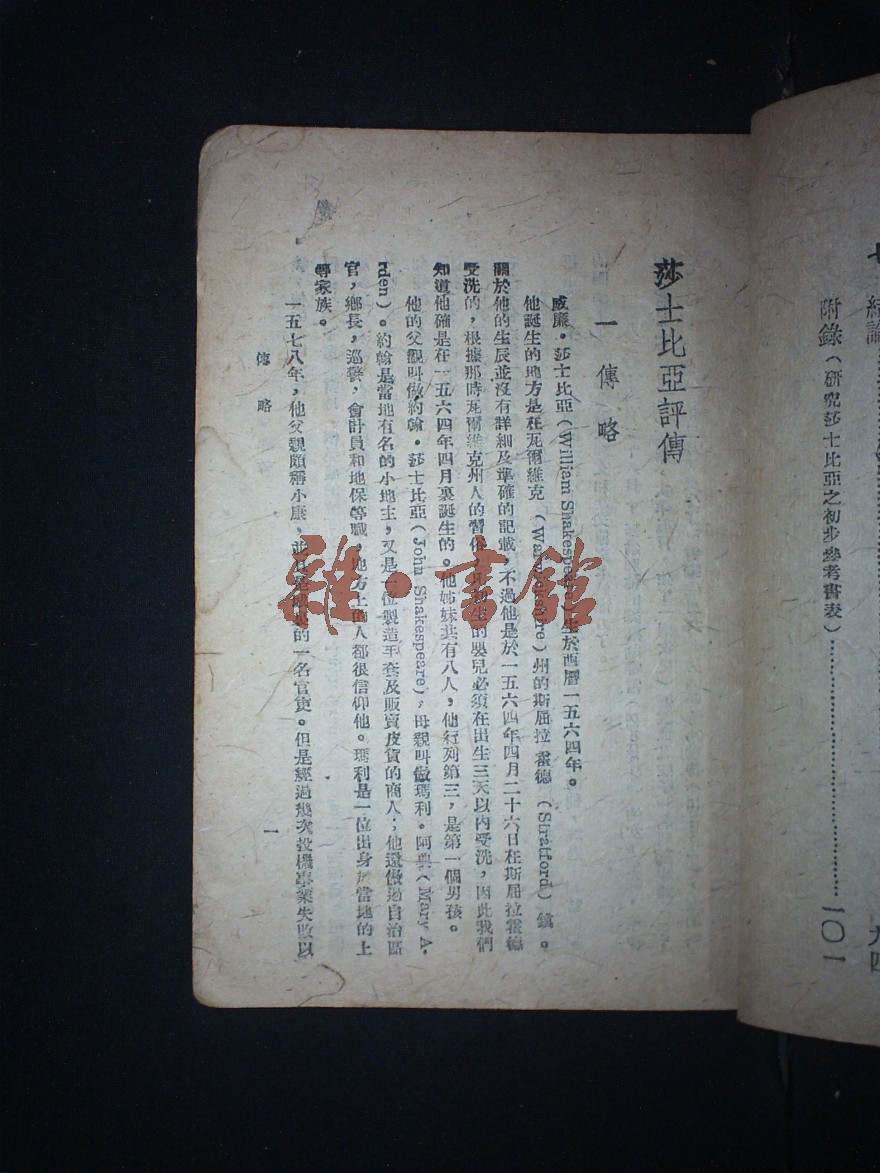 七 結論
九四
附錄(研究莎士比亞之初步參考書表)
一〇一
莎士比亞評傳
一 傳略
威廉・莎士比亞(William Shakespeare)生於西曆一五六四年。
他誕生的地方是在瓦爾維克(Warwickshire)州的斯屈拉霍德(Stratford)鎮。
關於他的生辰並沒有詳細及準確的記載,不過他是於一五六四年四月二十六日在斯屈拉霍德
受洗的,根據那時瓦爾維克州人的習俗,生的嬰兒必須在出生三天以內受洗,因此我們
知道他確是在一五六四年四月裏誕生的。他姊妹共有八人,他行列第三,是第一個男孩。
他的父親叫做約翰・莎士比亞(John Shakespeare),母親叫做瑪利。阿興(Mary A-
rden)。約翰是當地有名的小地主,又是一位製造手套及販賣皮貨的商人;他還做過自治區
官,鄉長,巡警,會計員和地保等職,地方上的人都很信仰他。瑪利是一位出身於當地的上
等家族。
一五七八年,他父親頗稱小康,並的一名官吏。但是經過幾次投機事業失敗以
傳略
一
雜・書館